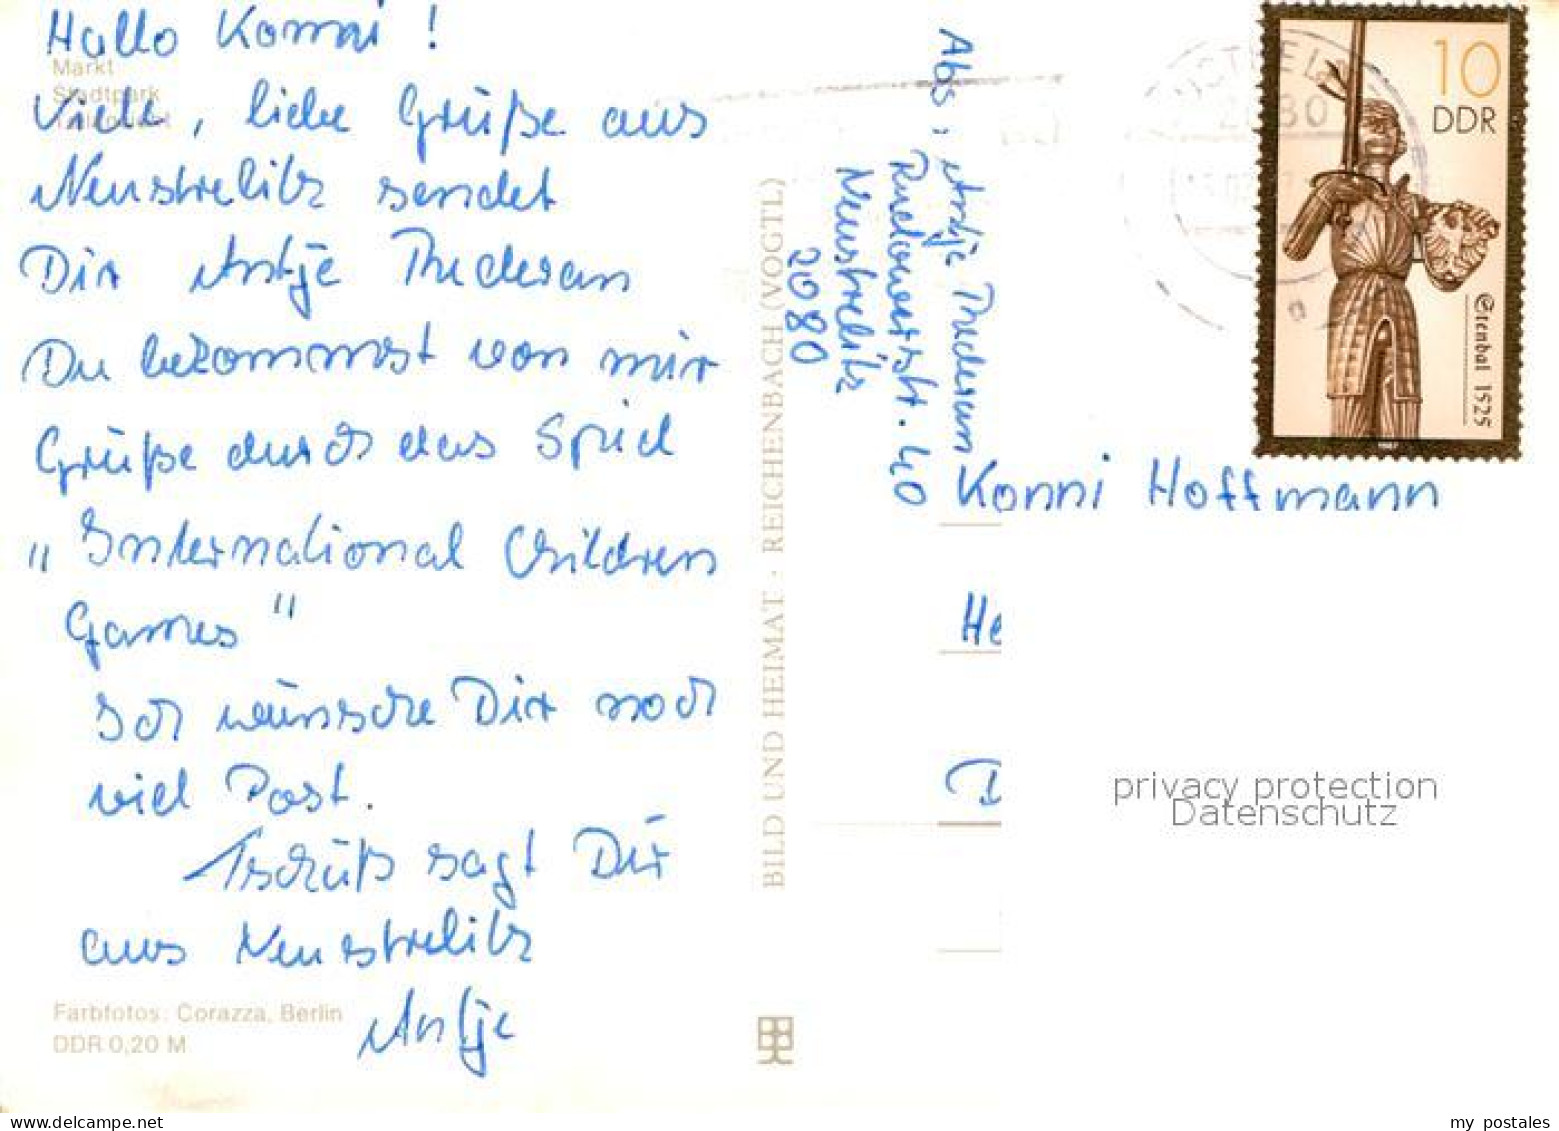 Hallo Konni !
Markt
Stadtpark
Viele, liebe Grüße aus
Neustrelitz sendet
Dir Antje Thederan
Du bekommst von mir
Grüße durch das Spiel
"International Children
Games"
Ich wünsche Dir noch
viel Post.
Tschüß sagt Dir
aus Neustrelitz
Antje
Farbfotos: Corazza, Berlin
DDR 0,20 M
BILD UND HEIMAT · REICHENBACH (VOGTL)
Abs.: Antje Thederan
40
Neustrelitz
2080
10
DDR
Stendal 1525
Konni Hoffmann
He
D
privacy protection
Datenschutz
my postales